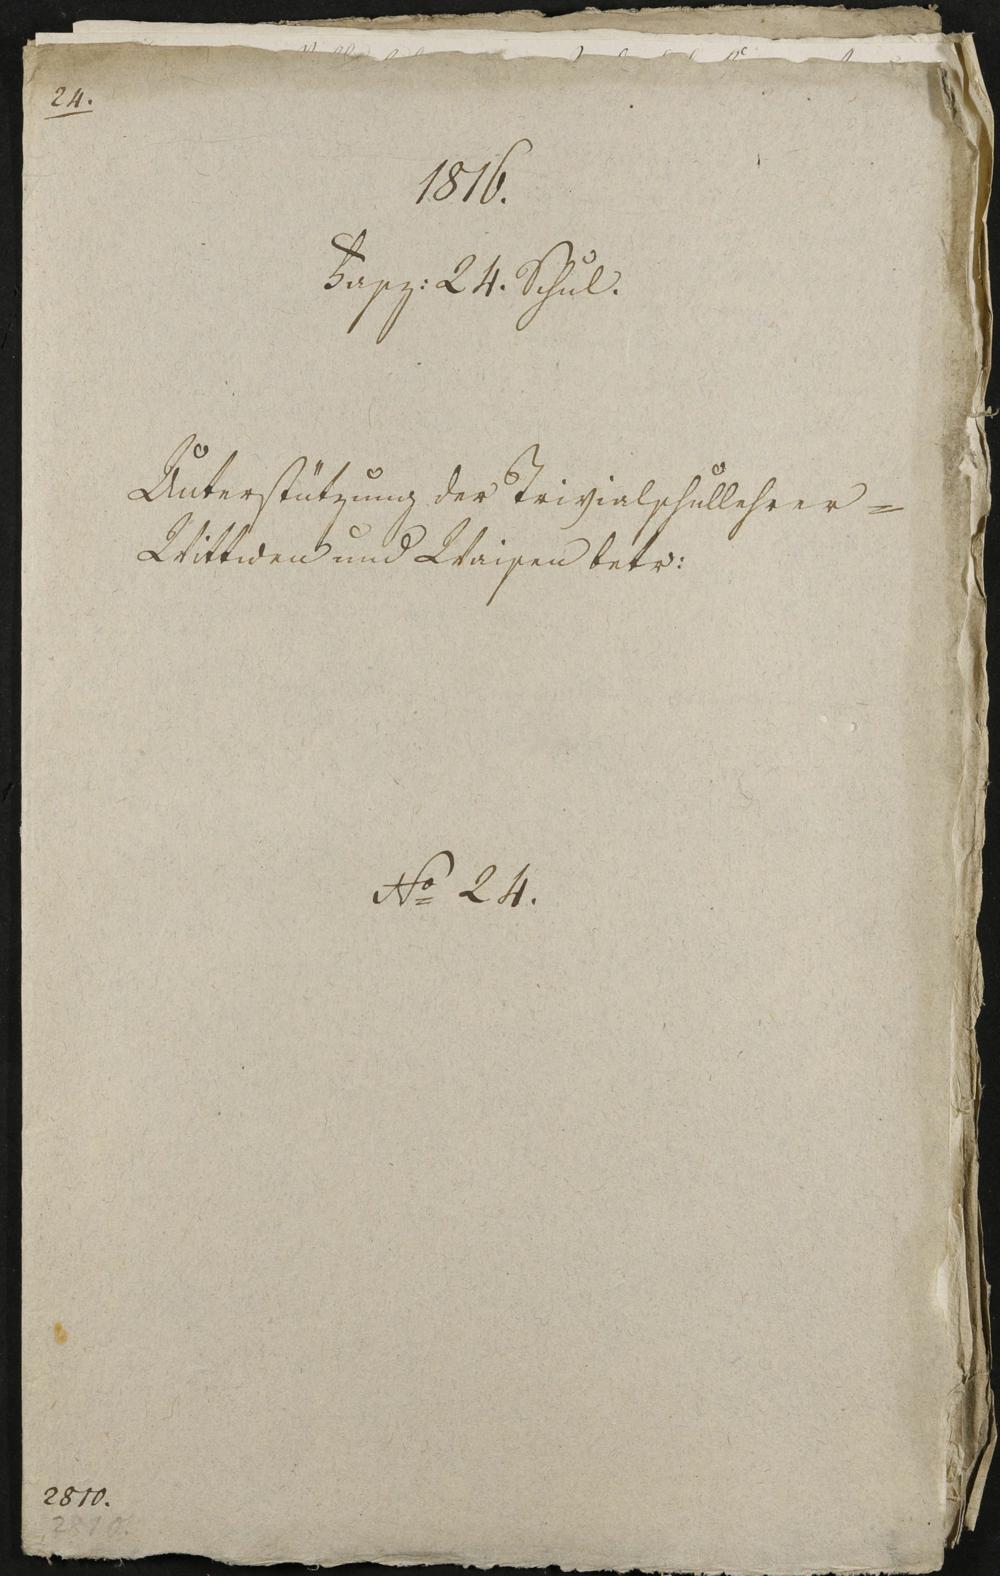 24.
1816.
Fasz: 24. Schul.
Unterstützung der Trivialschullehrer =
Wittwen und Waisen betr:
No 24.
2810.
2810.